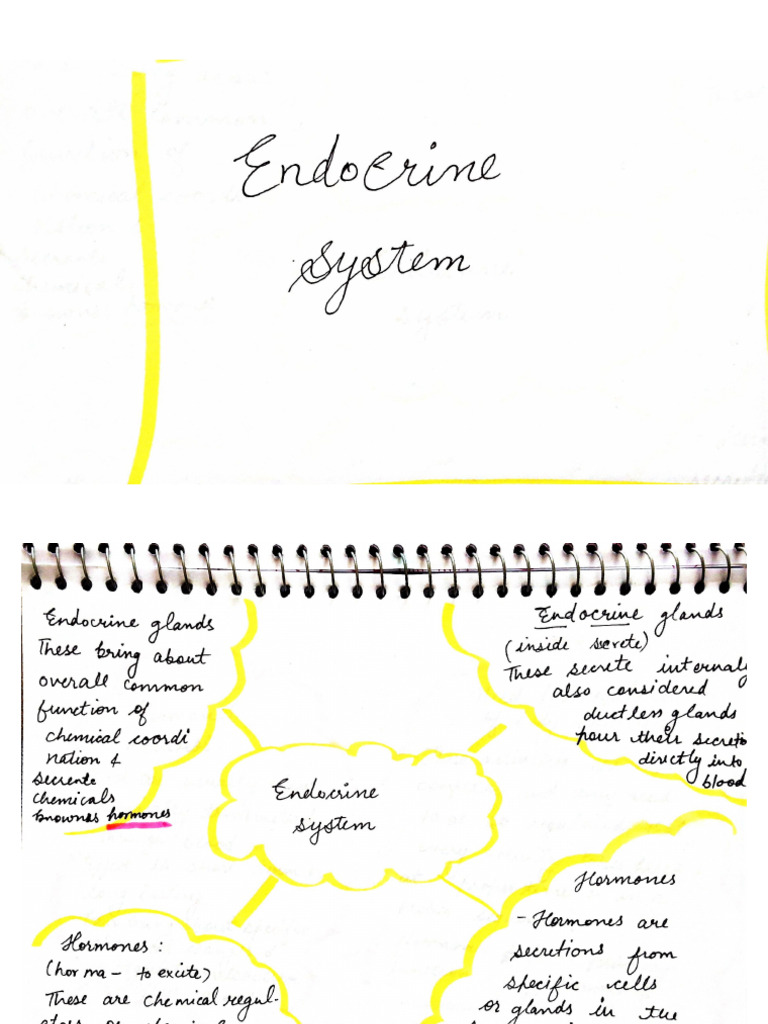 Endocrine
system
Endocrine glands
These bring about
overall common
function of
chemical coordi
nation &
secrete
chemicals
known as hormones
Endocrine glands
(inside secrete)
These secrete internaly
also considered
ductless glands
pour their secreto
directly into
blood
Endocrine
system
Hormones :
(hor ma - to excite)
These are chemical regul-
Hormones
- Hormones are
secretions from
specific cells
or glands in the